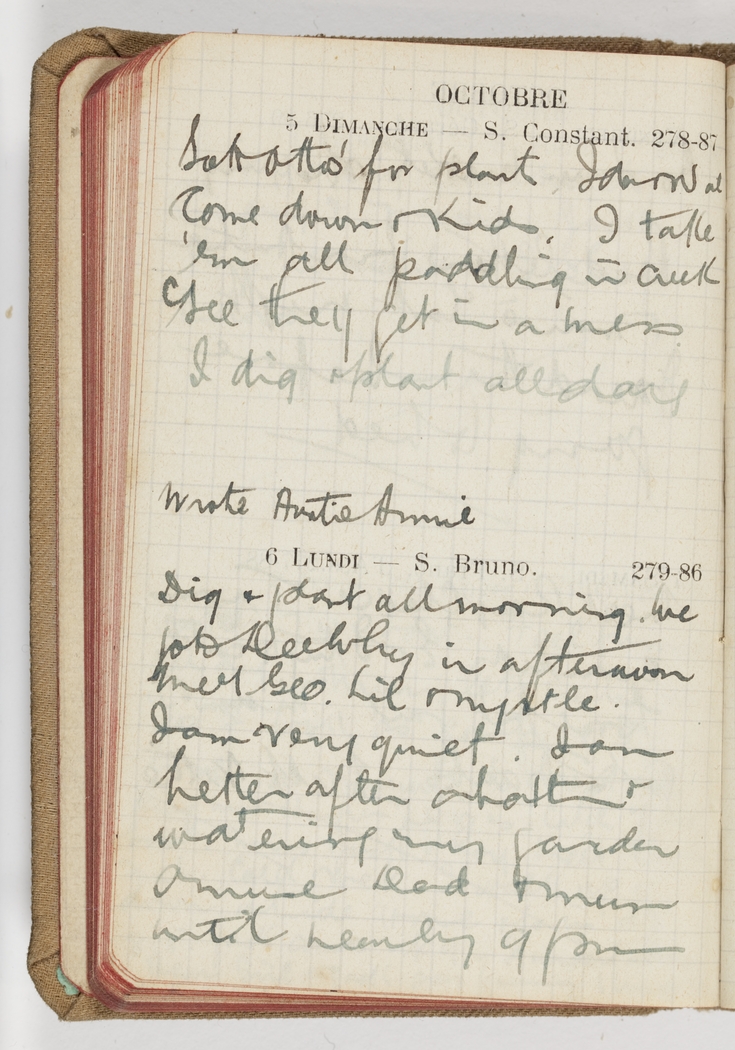 OCTOBRE
5 DIMANCHE — S. Constant. 278-87
for plant
Come down & Kids. I take
'em all paddling in creek
See they get in a mess
I dig & plant all day
Wrote Auntie Annie
6 LUNDI — S. Bruno. 279-86
Dig & plant all morning. We
to DeeWhy in afternoon
Meet Geo. Lil & Myrtle.
I am very quiet. I am
better after a bath &
watering my garden
Amuse Dad & Mum
until nearly 9 pm